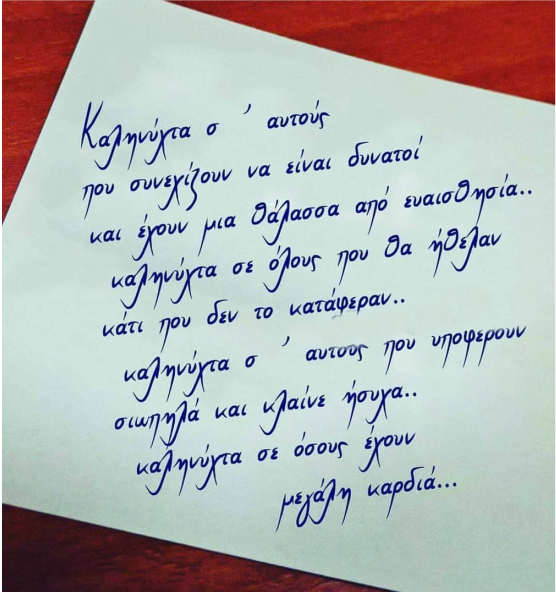 Καληνύχτα σ ' αυτούς
που συνεχίζουν να είναι δυνατοί
και έχουν μια θάλασσα από ευαισθησία..
καληνύχτα σε όλους που θα ήθελαν
κάτι που δεν το κατάφεραν..
καληνύχτα σ ' αυτους που υποφερουν
σιωπηλά και κλαίνε ήσυχα..
καληνύχτα σε όσους έχουν
μεγάλη καρδιά...